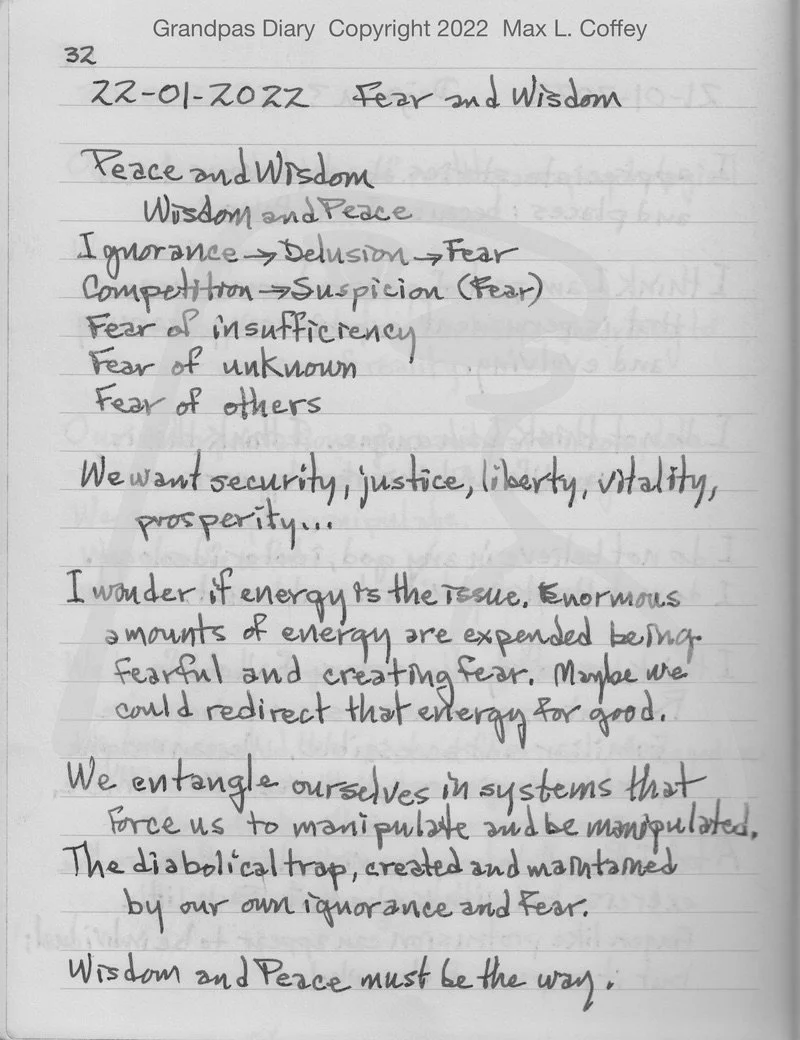 Grandpas Diary Copyright 2022 Max L. Coffey
32
22-01-2022 Fear and Wisdom
Peace and Wisdom
Wisdom and Peace
Ignorance → Delusion → Fear
Competition → Suspicion (Fear)
Fear of insufficiency
Fear of unknown
Fear of others
We want security, justice, liberty, vitality,
prosperity...
I wonder if energy is the issue. Enormous
amounts of energy are expended being
fearful and creating fear. Maybe we
could redirect that energy for good.
We entangle ourselves in systems that
force us to manipulate and be manipulated.
The diabolical trap, created and maintained
by our own ignorance and Fear.
Wisdom and Peace must be the way.